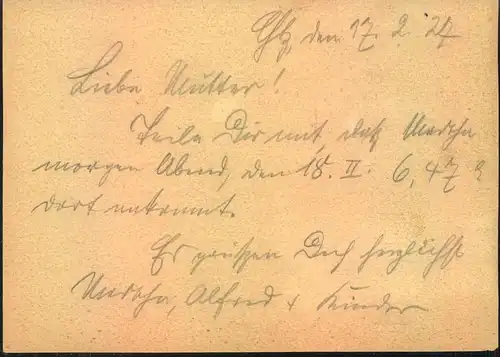 den 17. 2. 27
Liebe Mutter!
Teile Dir mit, daß Martha
morgen Abend, den 18. II. 6,47
dort ankommt.
Es grüßen Dich herzlichst
Martha, Alfred + Kinder